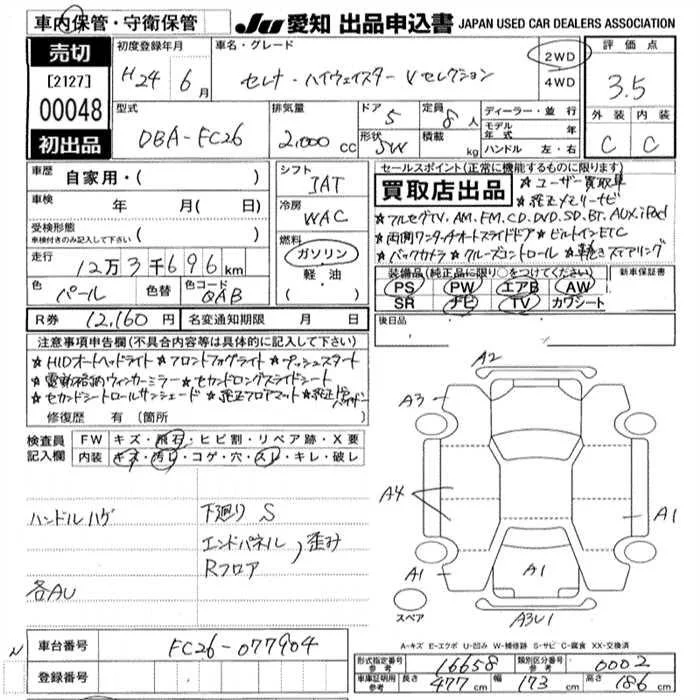 車内保管・守衛保管
JU 愛知 出品申込書 JAPAN USED CAR DEALERS ASSOCIATION
売切
[2127]
00048
初出品
初度登録年月
H24年 6月
車名・グレード
セレナ・ハイウェイスター Vセレクション
2WD
4WD
評価点
3.5
外装 内装
C C
型式
DBA-FC26
排気量
2,000 cc
ドア 5
形状 SW
定員 8人
積載 kg
ディーラー・並行
モデル年式 年
ハンドル 左・右
車歴
自家用・( )
車検
年 月( 日)
受検形態
車検付きのみ記入して下さい ( )
走行
12万3千696km
色
パール
色替
色コード
QAB
シフト
IAT
冷房
WAC
燃料
ガソリン
軽・油
( )
セールスポイント(正常に機能するものに限ります)
買取店出品
★ユーザー買取車
★純正メモリーナビ
★フルセグTV.AM.FM.CD.DVD.SD.BT.AUX.iPod
★両側ワンタッチオートスライドドア ★ビルトインETC
★バックカメラ ★クルーズコントロール ★革巻きステアリング
装備品(純正品に限り○をつけてください)
PS PW エアB AW
SR ナビ TV カワシート
新車保証書
後日品
R券 12,160円
名変通知期限 月 日
注意事項申告欄(不具合内容等は具体的に記入して下さい)
★HIDオートヘッドライト ★フロントフォグライト ★プッシュスタート
★電動格納ウィンカーミラー ★セカンドロングスライドシート
★セカンドシートロールサンシェード ★純正フロアマット ★純正ドアバイザー
修復歴 有 (箇所 )
検査員記入欄
FW キズ・飛石・ヒビ割・リペア跡・X要
内装 キズ・汚れ・コゲ・穴・スレ・キレ・破レ
ハンドルハゲ
下廻り S
エンドパネル、歪み
Rフロア
各AU
A2
A3
A4
A1
A1
A1
A3U1
スペア
A-キズ E-エクボ U-凹み W-補修跡 S-サビ C-腐食 XX-交換済
N
車台番号
FC26-077904
登録番号
形式指定番号 参考 16658
類別区分番号 参考 0002
車庫証明用 参考 長さ 477cm 幅 173cm 高さ 186cm